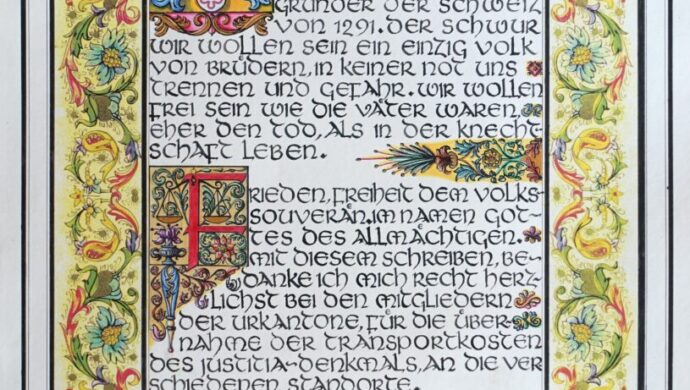 GRÜNDER DER SCHWEIZ
VON 1291. DER SCHWUR
WIR WOLLEN SEIN EIN EINZIG VOLK
VON BRÜDERN, IN KEINER NOT UNS
TRENNEN UND GEFAHR. WIR WOLLEN
FREI SEIN WIE DIE VÄTER WAREN,
EHER DEN TOD, ALS IN DER KNECHT
SCHAFT LEBEN.
FRIEDEN, FREIHEIT DEM VOLKS-
SOUVERÄN. IM NAMEN GOT-
TES DES ALLMÄCHTIGEN.
MIT DIESEM SCHREIBEN, BE-
DANKE ICH MICH RECHT HERZ-
LICHST BEI DEN MITGLIEDERN
DER URKANTONE, FÜR DIE ÜBER-
NAHME DER TRANSPORTKOSTEN
DES JUSTITIA-DENKMALS, AN DIE VER
SCHIEDENEN STANDORTE.